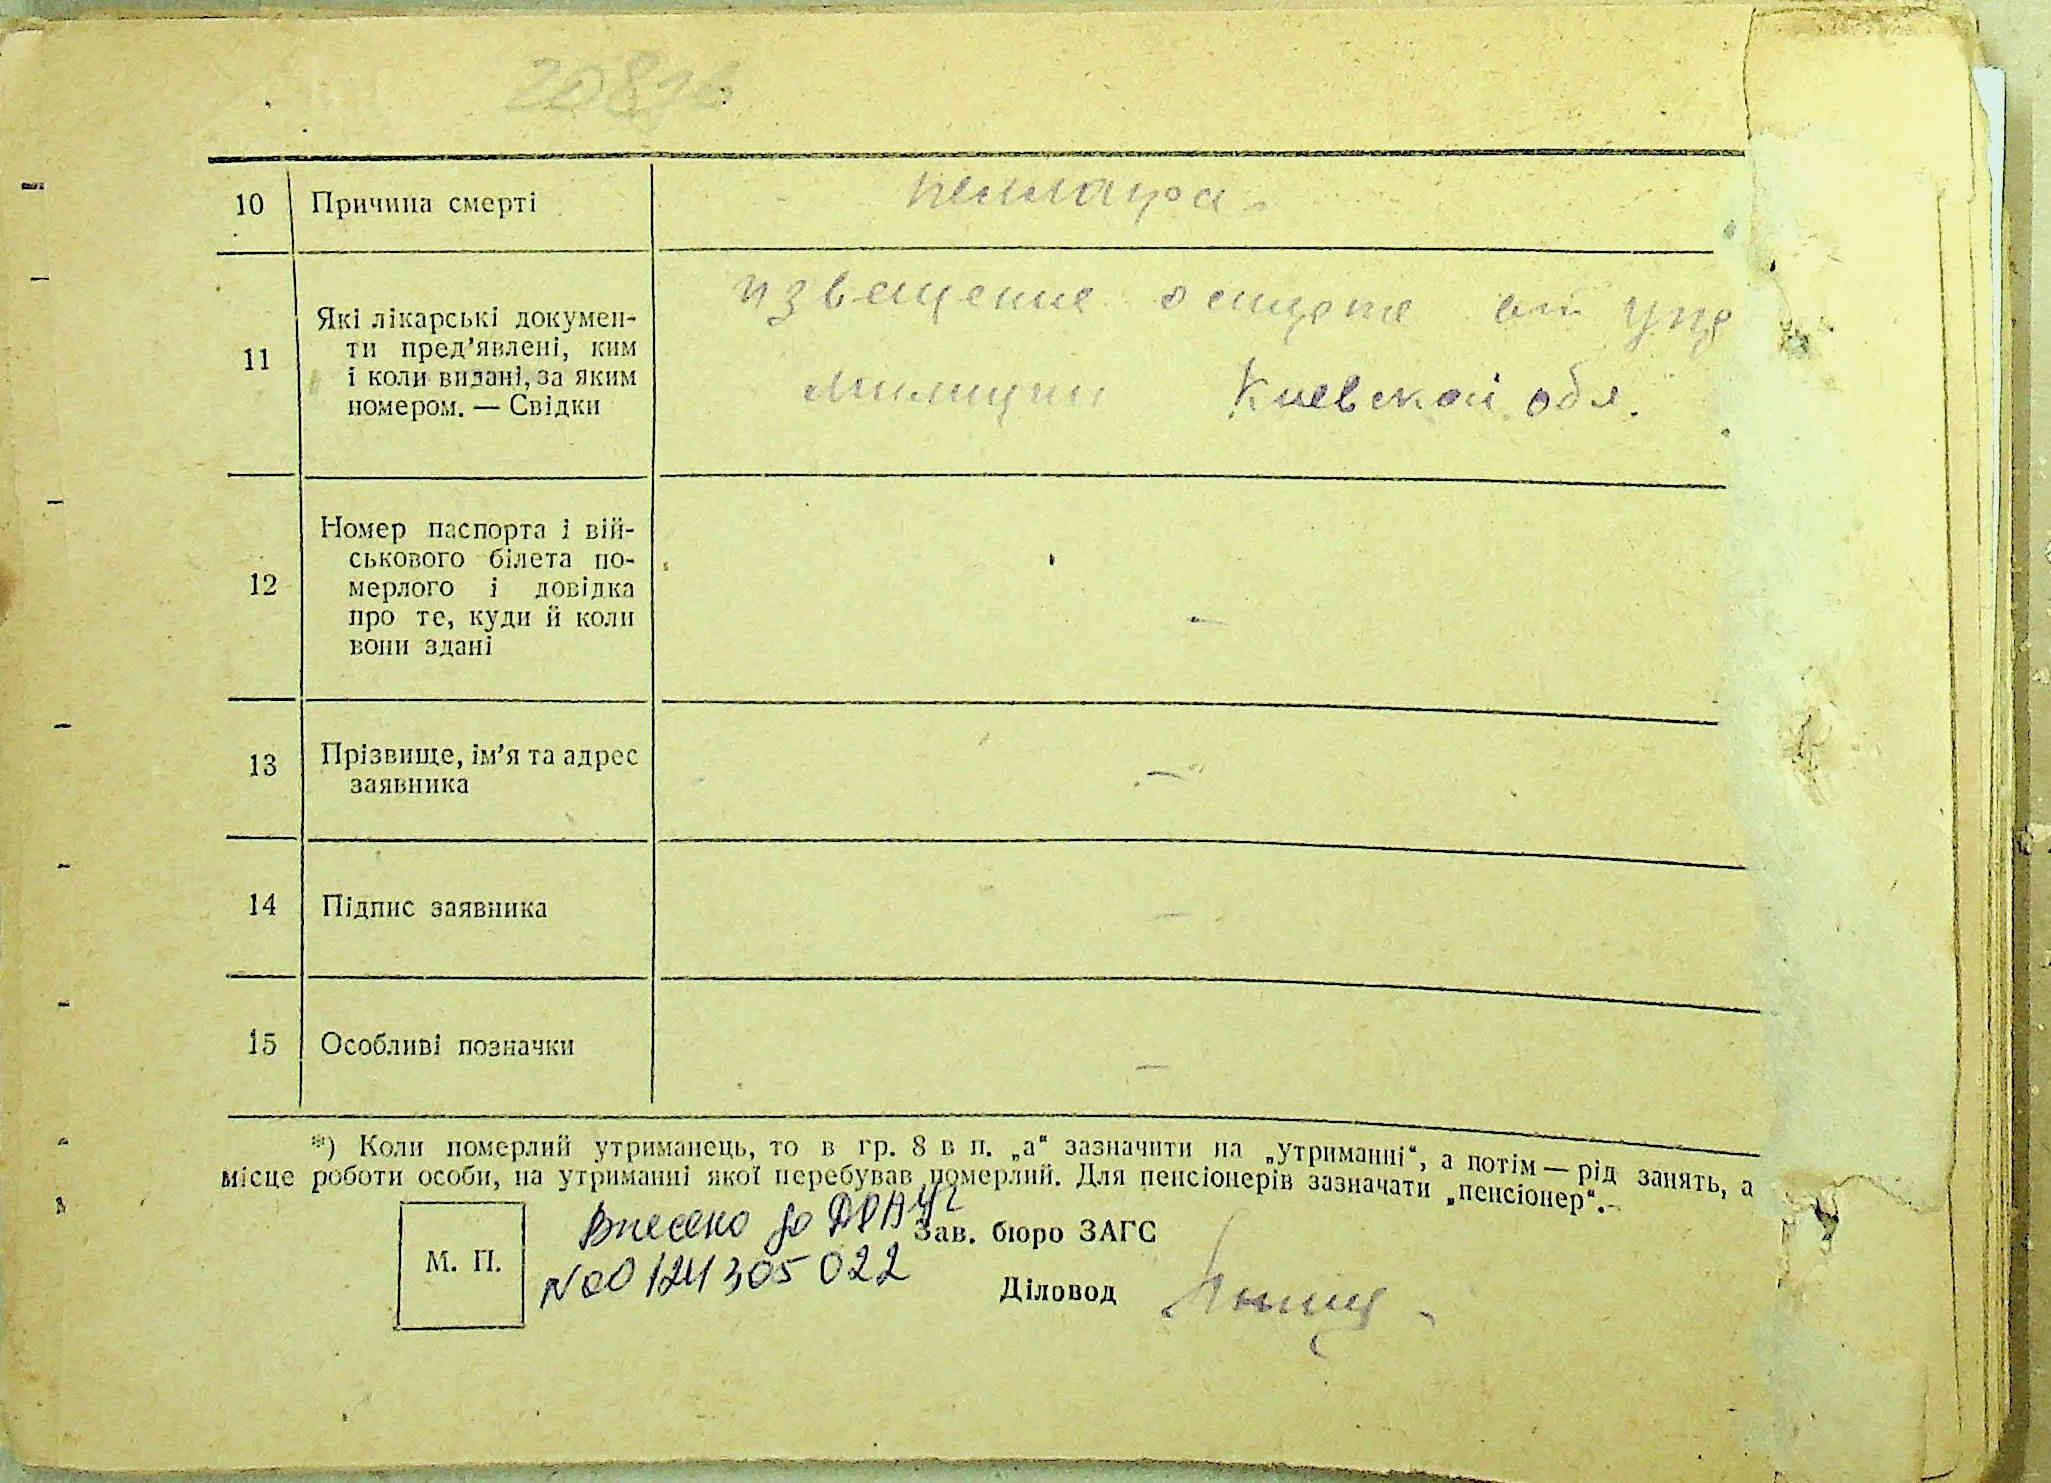 10 Причина смерті пеллагра
11 Які лікарські докумен-
ти пред’явлені, ким
і коли видані, за яким
номером. — Свідки
извещение о смерти от упр
милиции Киевской обл.
12 Номер паспорта і вій-
ськового білета по-
мерлого і довідка
про те, куди й коли
вони здані
–
13 Прізвище, ім’я та адрес
заявника
–
14 Підпис заявника
–
15 Особливі позначки
–
*) Коли померлий утриманець, то в гр. 8 в п. „а“ зазначити на „утриманні“, а потім — рід занять, а
місце роботи особи, на утриманні якої перебував померлий. Для пенсіонерів зазначати „пенсіонер“.
Внесено до ДРАЦС
№00124305022
М. П.
Зав. бюро ЗАГС
Діловод